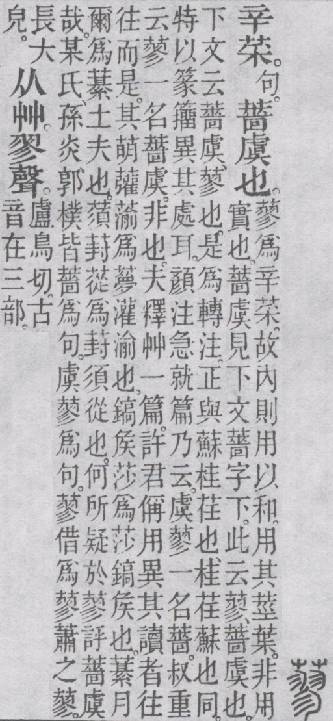 蓼
辛菜。句。薔虞也。
蓼爲辛菜。故內則用以和。用其莖葉。非用
實也。薔虞見下文薔字下。此云蓼。薔虞也。
下文云薔虞。蓼也。是爲轉注。正與蘇桂荏也桂荏蘇也同。
特以篆籒異其處耳。顔注急就篇乃云。虞蓼一名薔。叔重
云蓼一名薔虞。非也。夫釋艸一篇。許君偁用異其讀者往
往而是。其萌虇蕍爲夢灌渝也。鎬侯莎爲莎鎬侯也。綦月
爾爲綦土夫也。蕦葑蓯爲葑須從也。何所疑於蓼評薔虞
哉。某氏孫炎郭樸皆薔爲句。虞蓼爲句。蓼借爲蓼蕭之蓼。
長大
皃。
从艸。翏聲。
盧鳥切。古
音在三部。